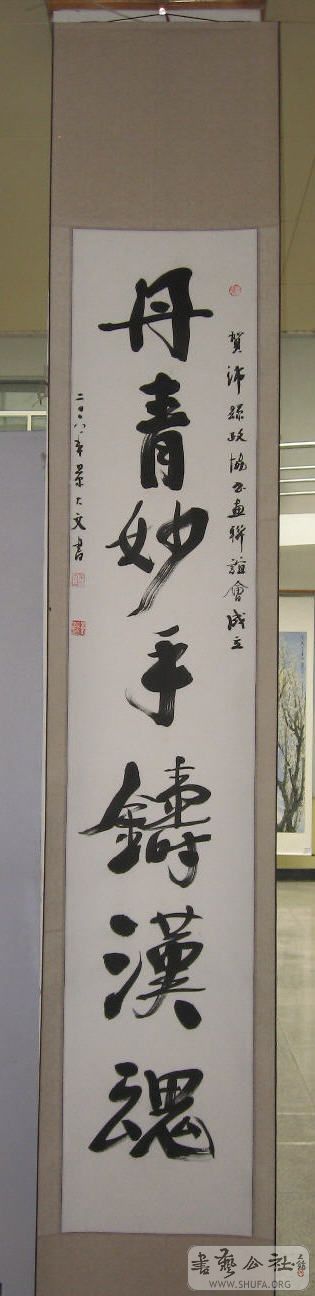 賀沛縣政協書畫聯誼會成立
丹青妙手鑄漢魂
二〇〇八年景大文書
書藝公社
WWW.SHUFA.ORG